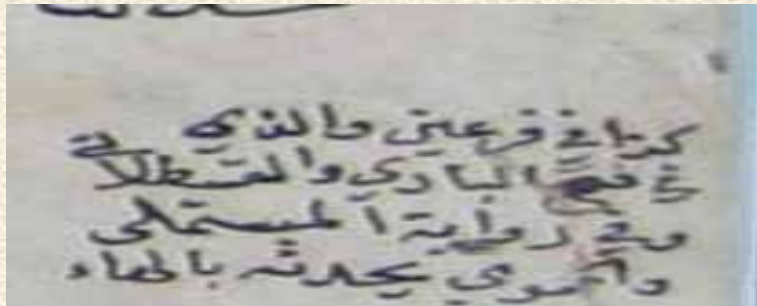 كذا في فرعين والذي
في فتح الباري والقسطلاني
وفي رواية المستملي
والحموي يحدثه بالهاء